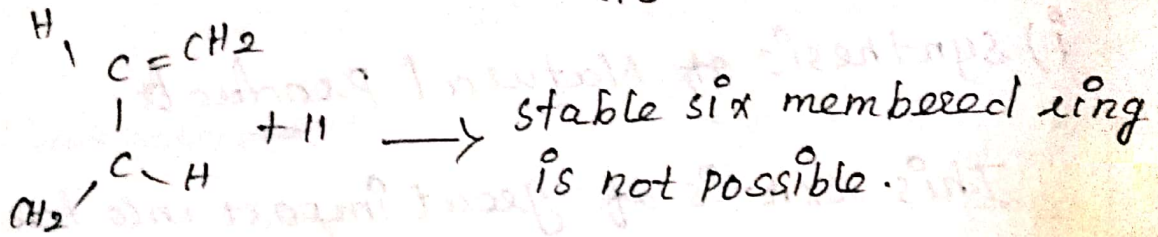 H
C = CH2
C H
CH2
+ || → stable six membered ring
is not possible.